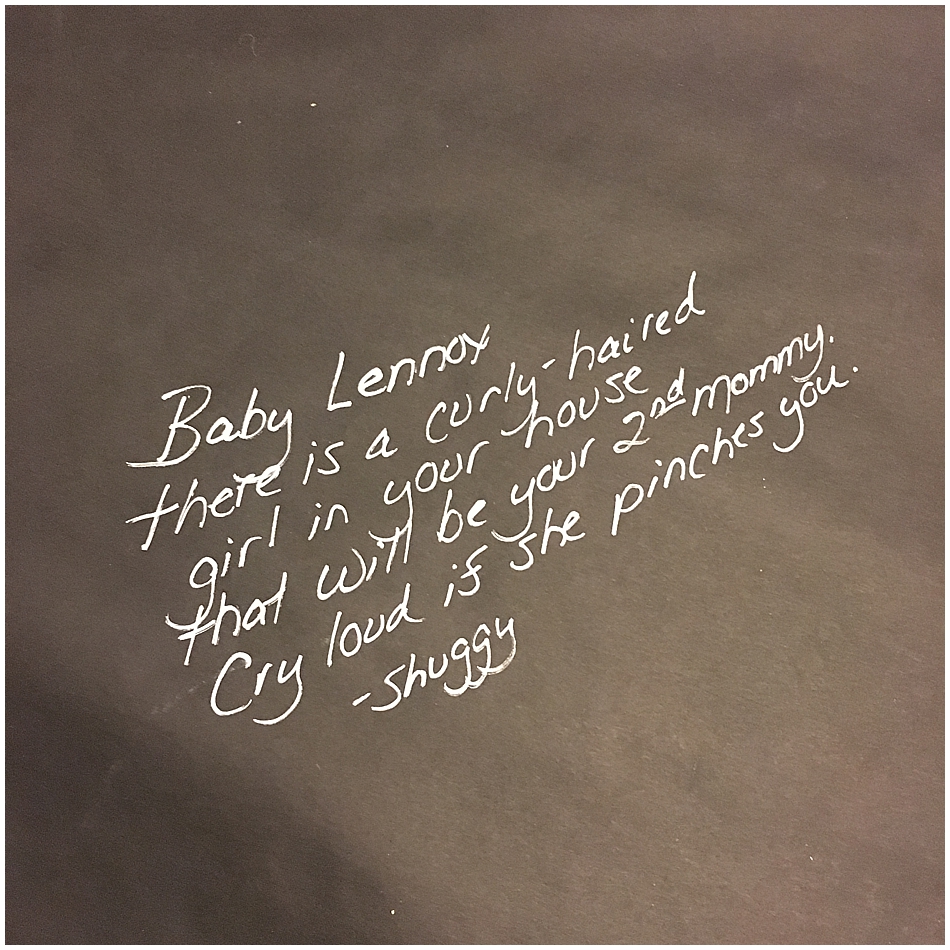 Baby Lennox
there is a curly-haired
girl in your house
that will be your 2nd mommy.
Cry loud if she pinches you.
-Shuggy